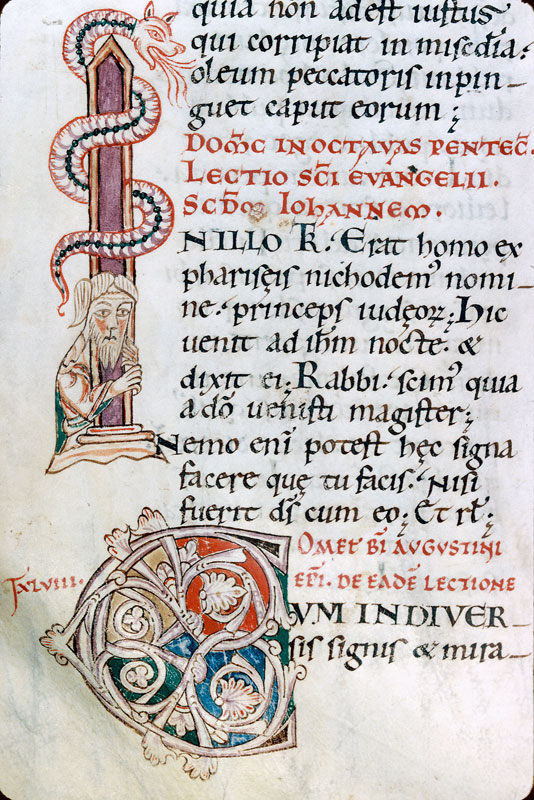 quia non adest iustus
qui corripiat in misc̄dia:
oleum peccatoris inpin-
guet caput eorum;
DOM̄C IN OCTAVAS PENTEC̄.
LECTIO SC̄I EVANGELII.
SCD̄M IOHANNEM.
IN ILLO T̄. Erat homo ex
phariseis nichodem' nomi-
ne. princeps iudęoꝝ; Hic
uenit ad ih̄m nocte. &
dixit ei; Rabbi. scim' quia
a dō uenisti magister;
Nemo eni' potest hęc signa
facere quę tu facis. Nisi
fuerit d̄s cum eo; Et rł;
OMEĪ BI AVGVSTINI
EP̄I. DE EADĒ LECTIONE
XLVIII.
CVM IN DIVER-
sis signis & mira-